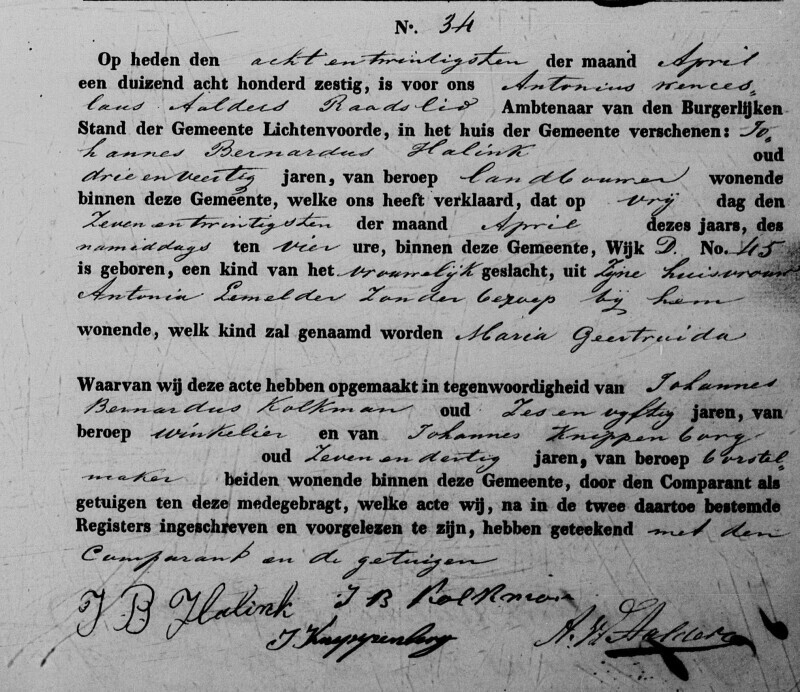 N°. 34
Op heden den acht en twintigsten der maand April
een duizend acht honderd zestig, is voor ons Antonius Wences-
laus Aalders Raadslid Ambtenaar van den Burgerlijken
Stand der Gemeente Lichtenvoorde, in het huis der Gemeente verschenen: Jo-
hannes Bernardus Halink oud
drie en veertig jaren, van beroep landbouwer wonende
binnen deze Gemeente, welke ons heeft verklaard, dat op vrij dag den
Zeven en twintigsten der maand April dezes jaars, des
namiddags ten vier ure, binnen deze Gemeente, Wijk D. No. 45
is geboren, een kind van het vrouwelijk geslacht, uit Zijne huisvrouw
Antonia Lemelder Zonder beroep bij hem
wonende, welk kind zal genaamd worden Maria Geertruida
Waarvan wij deze acte hebben opgemaakt in tegenwoordigheid van Johannes
Bernardus Kolkman oud Zes en vyftig jaren, van
beroep winkelier en van Johannes Knippenborg
oud Zeven en dertig jaren, van beroep borstel-
maker beiden wonende binnen deze Gemeente, door den Comparant als
getuigen ten deze medegebragt, welke acte wij, na in de twee daartoe bestemde
Registers ingeschreven en voorgelezen te zijn, hebben geteekend met den
Comparant en de getuigen
J B Halink J B Kolkman
J Knippenborg A. W. Aalders